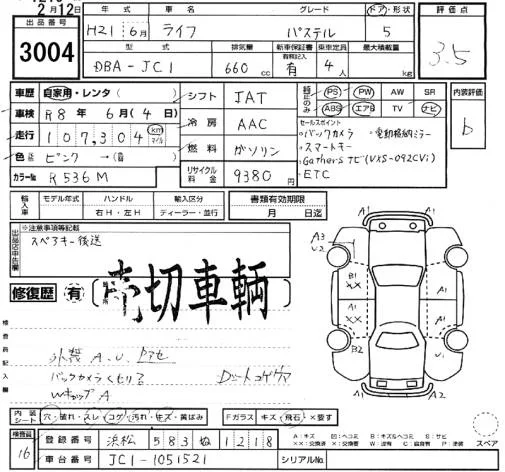 2月12日
出品番号
3004
年式 車名 グレード ドア・形状 評価点
H21 6月 ライフ パステル 5 3.5
型式 排気量 新車保証書 乗車定員 最大積載量
有無記入
DBA-JC1 660cc 有 4人 kg
車歴 自家用・レンタ( )
シフト JAT
純正のみ
PS PW AW SR
ABS エアB TV ナビ
内装評価
b
車検 R8年 6月(4日)
冷房 AAC
セールスポイント
・バックカメラ ・電動格納ミラー
・スマートキー
・Gathersナビ(VXS-092CVi)
・ETC
走行 107,304 km マイル
燃料 ガソリン
色 ピンク →( 色)
カラーNo R536M
リサイクル料金 9380円
輸入車 モデル年式 ハンドル 輸入区分 書類有効期限
右H・左H ディーラー・並行 月 日迄
出品店申告欄
※注意事項等記載
スペアキー後送
修復歴 有
売切車輌
検査員記入欄
外装 A.U.
バックカメラくもり
Wキップ A
A3
U2
B1
XX
A1
A1
XX
B2
A1
A1
A1
A1
U1
内装シート 穴・破れ・スレ コゲ 汚れ・キズ・黄ばみ Fガラス キズ・飛石・×要す
検査員
16
登録番号 浜松 583 ぬ 1218
車台番号 JC1-1051521 シリアルNo.
A:キズ U:ヘコミ B:キズ&ヘコミ S:サビ
X:要交換 XX:交換済 W:補修 C:腐食有 P:塗装
スペア